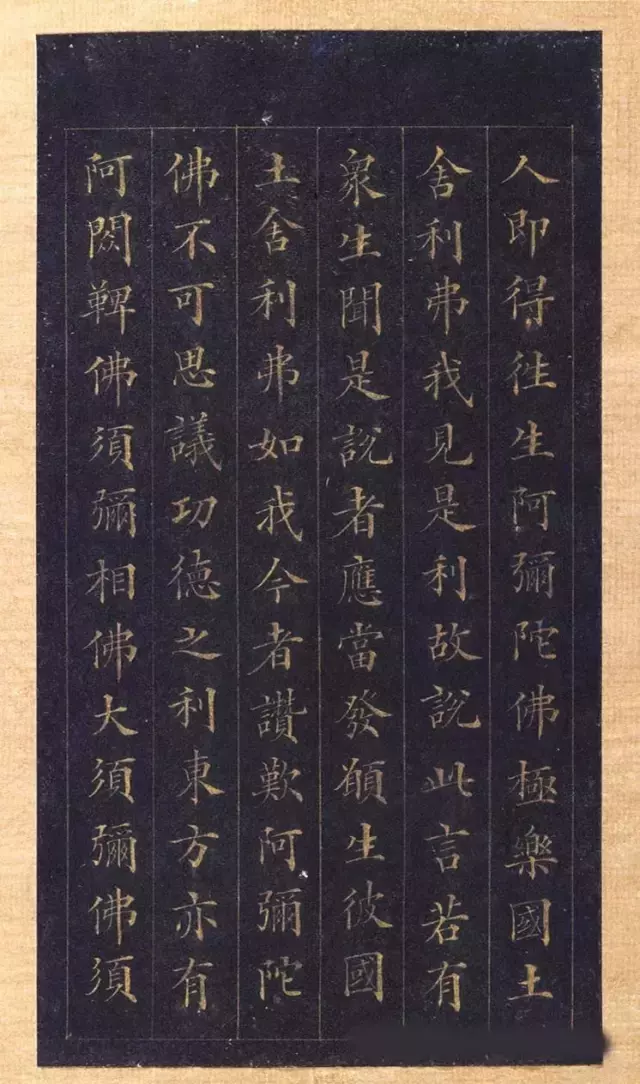 人即得徃生阿彌陀佛極樂國土
舍利弗我見是利故說此言若有
衆生聞是說者應當發願生彼國
土舍利弗如我今者讃歎阿彌陀
佛不可思議功德之利東方亦有
阿閦鞞佛須彌相佛大須彌佛須